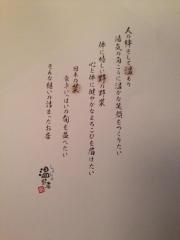 人の絆そして温もり
活気の角ごらに温かな笑顔をつくりたい
体に嬉しい野の野菜
心と体に健やかなよろこびを届けたい
日本の菜
食卓いっぱいの旬を並べたい
そんな想いの詰まったお店
温野菜